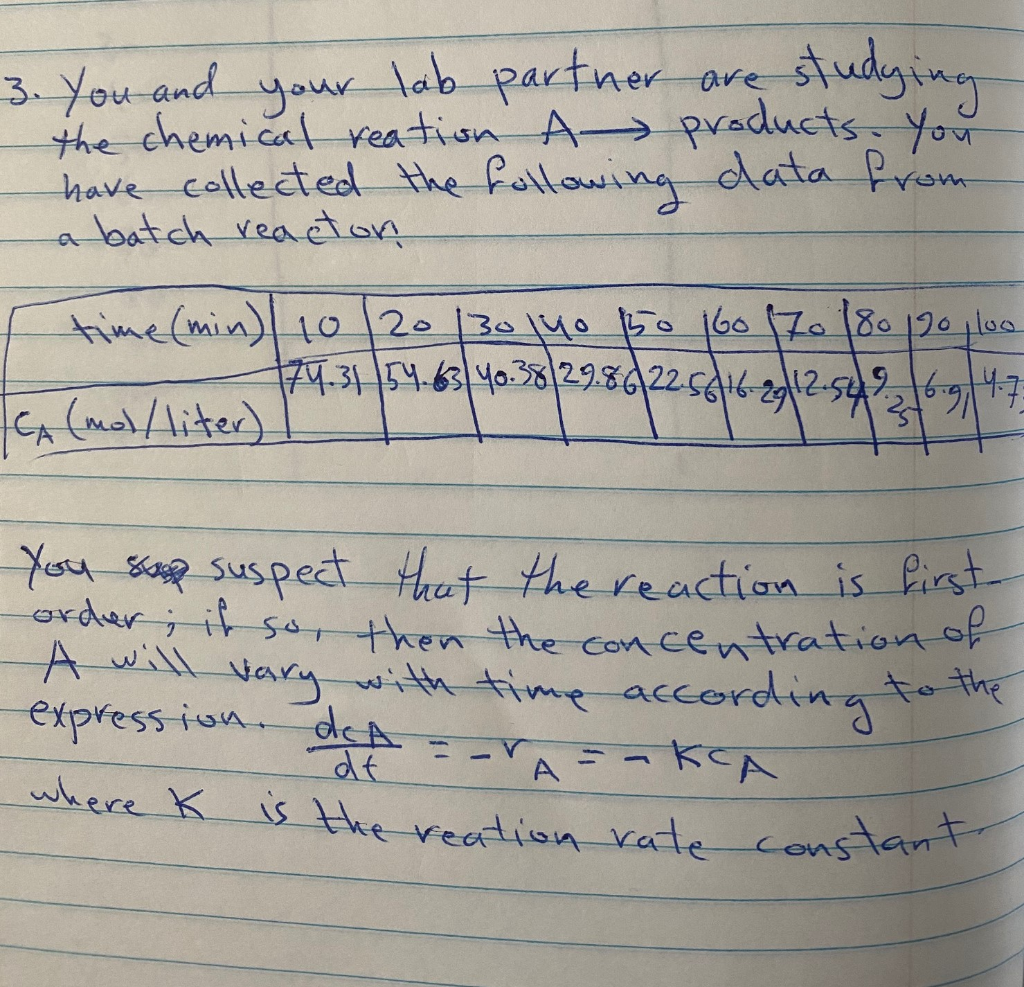 3. You and your lab partner are studying
the chemical reation A → products. You
have collected the following data from
a batch reactor.
time (min) 10 20 30 40 50 60 70 80 90 100
CA (mol/liter) 74.31 54.63 40.38 29.86 22.56 16.29 12.54 9.25 6.91 4.7
You suspect that the reaction is first-
order; if so, then the concentration of
A will vary with time according to the
expression. dcA/dt = -rA = - KCA
where K is the reation rate constant.